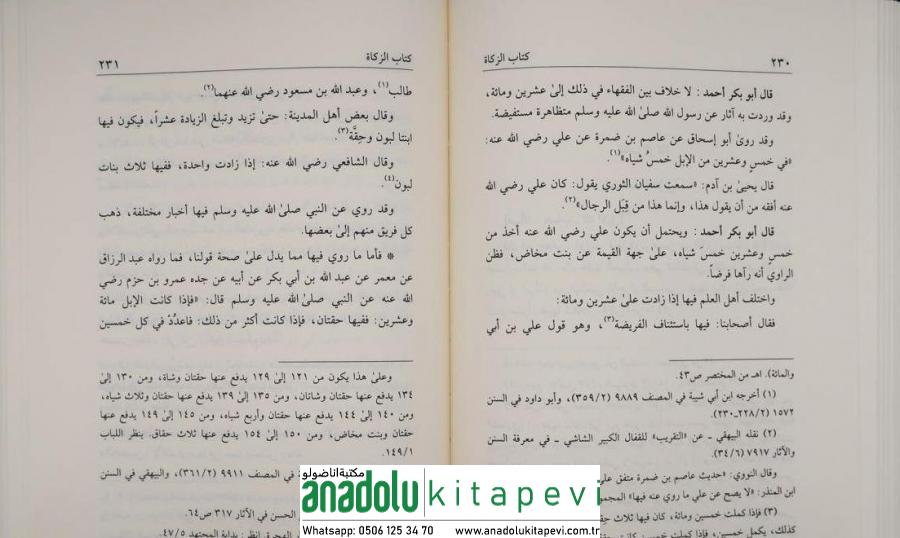 ٢٣٠
كتاب الزكاة
قال أبو بكر أحمد : لا خلاف بين الفقهاء في ذلك إلىٰ عشرين ومائة،
وقد وردت به آثار عن رسول الله صلىٰ الله عليه وسلم متظاهرة مستفيضة.
وقد روىٰ أبو إسحاق عن عاصم بن ضمرة عن علي رضي الله عنه:
«في خمسٍ وعشرين من الإبل خمسُ شياه»(١).
قال يحيىٰ بن آدم: «سمعت سفيان الثوري يقول: كان علي رضي الله
عنه أفقه من أن يقول هذا، وإنما هذا من قِبَل الرجال»(٢).
قال أبو بكر أحمد : ويحتمل أن يكون علي رضي الله عنه أخذ من
خمسٍ وعشرين خمسَ شياه، علىٰ جهة القيمة عن بنت مخاض، فظن
الراوي أنه رآها فرضاً.
واختلف أهل العلم فيها إذا زادت علىٰ عشرين ومائة:
فقال أصحابنا: فيها باستئناف الفريضة(٣)، وهو قول علي بن أبي
والمائة). اهـ من المختصر ص٤٣.
(١) أخرجه ابن أبي شيبة في المصنف ٩٨٨٩ (٣٥٩/٢)، وأبو داود في السنن
١٥٧٢ (٢٢٨/٢ـ٢٣٠).
(٢) نقله البيهقي ـ عن «التقريب» للقفال الكبير الشاشي ـ في معرفة السنن
والآثار ٧٩١٧ (٣٤/٦).
وقال النووي: «حديث عاصم بن ضمرة متفق علىٰ
ابن المنذر: «لا يصح عن علي ما روي عنه فيها» المجمو
(٣) فإذا كملت خمسين ومائة، كان فيها ثلاث حقا
كذلك، يكمل خمسين، فإذا كملت خمسين كانت
كتاب الزكاة
٢٣١
طالب(١)، وعبد الله بن مسعود رضي الله عنهما(٢).
وقال بعض أهل المدينة: حتىٰ تزيد وتبلغ الزيادة عشراً، فيكون فيها
ابنتا لبون وحِقَّة(٣).
وقال الشافعي رضي الله عنه: إذا زادت واحدة، ففيها ثلاث بنات
لبون(٤).
وقد روي عن النبي صلىٰ الله عليه وسلم فيها أخبار مختلفة، ذهب
كل فريق منهم إلىٰ بعضها.
* فأما ما روي فيها مما يدل علىٰ صحة قولنا، فما رواه عبد الرزاق
عن معمر عن عبد الله بن أبي بكر عن أبيه عن جده عمرو بن حزم رضي
الله عنه عن النبي صلىٰ الله عليه وسلم قال: «فإذا كانت الإبل مائة
وعشرين: ففيها حقتان، فإذا كانت أكثر من ذلك: فاعدُدْ في كل خمسين
وعلىٰ هذا يكون من ١٢١ إلىٰ ١٢٩ يدفع عنها حقتان وشاة، ومن ١٣٠ إلىٰ
١٣٤ يدفع عنها حقتان وشاتان، ومن ١٣٥ إلىٰ ١٣٩ يدفع عنها حقتان وثلاث شياه،
ومن ١٤٠ إلىٰ ١٤٤ يدفع عنها حقتان وأربع شياه، ومن ١٤٥ إلىٰ ١٤٩ يدفع عنها
حقتان وبنت مخاض، ومن ١٥٠ إلىٰ ١٥٤ يدفع عنها ثلاث حقاق. ينظر اللباب
١٤٩/١.
في المصنف ٩٩١١ (٣٦١/٢)، والبيهقي في السنن
الحسن في الآثار ٣١٧ ص٦٤.
انظر: بداية المجتهد ٤٧/٥.
مكتبة اناضولو
anadolu kitapevi
Whatsapp: 0506 125 34 70 www.anadolukitapevi.com.tr